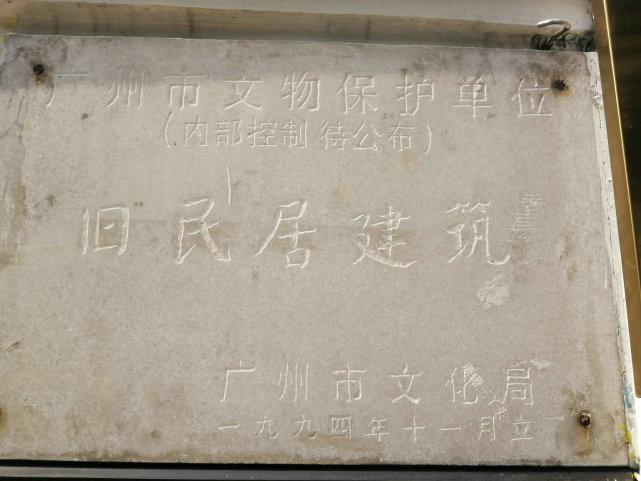 广州市文物保护单位
(内部控制 待公布)
旧民居建筑
广州市文化局
一九九四年十一月立